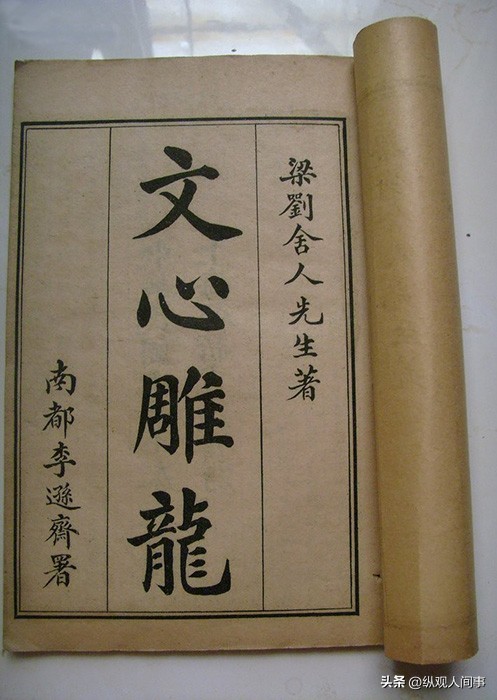 梁劉舍人先生著
文心雕龍
南都李遜齋署
头条 @纵观人间事